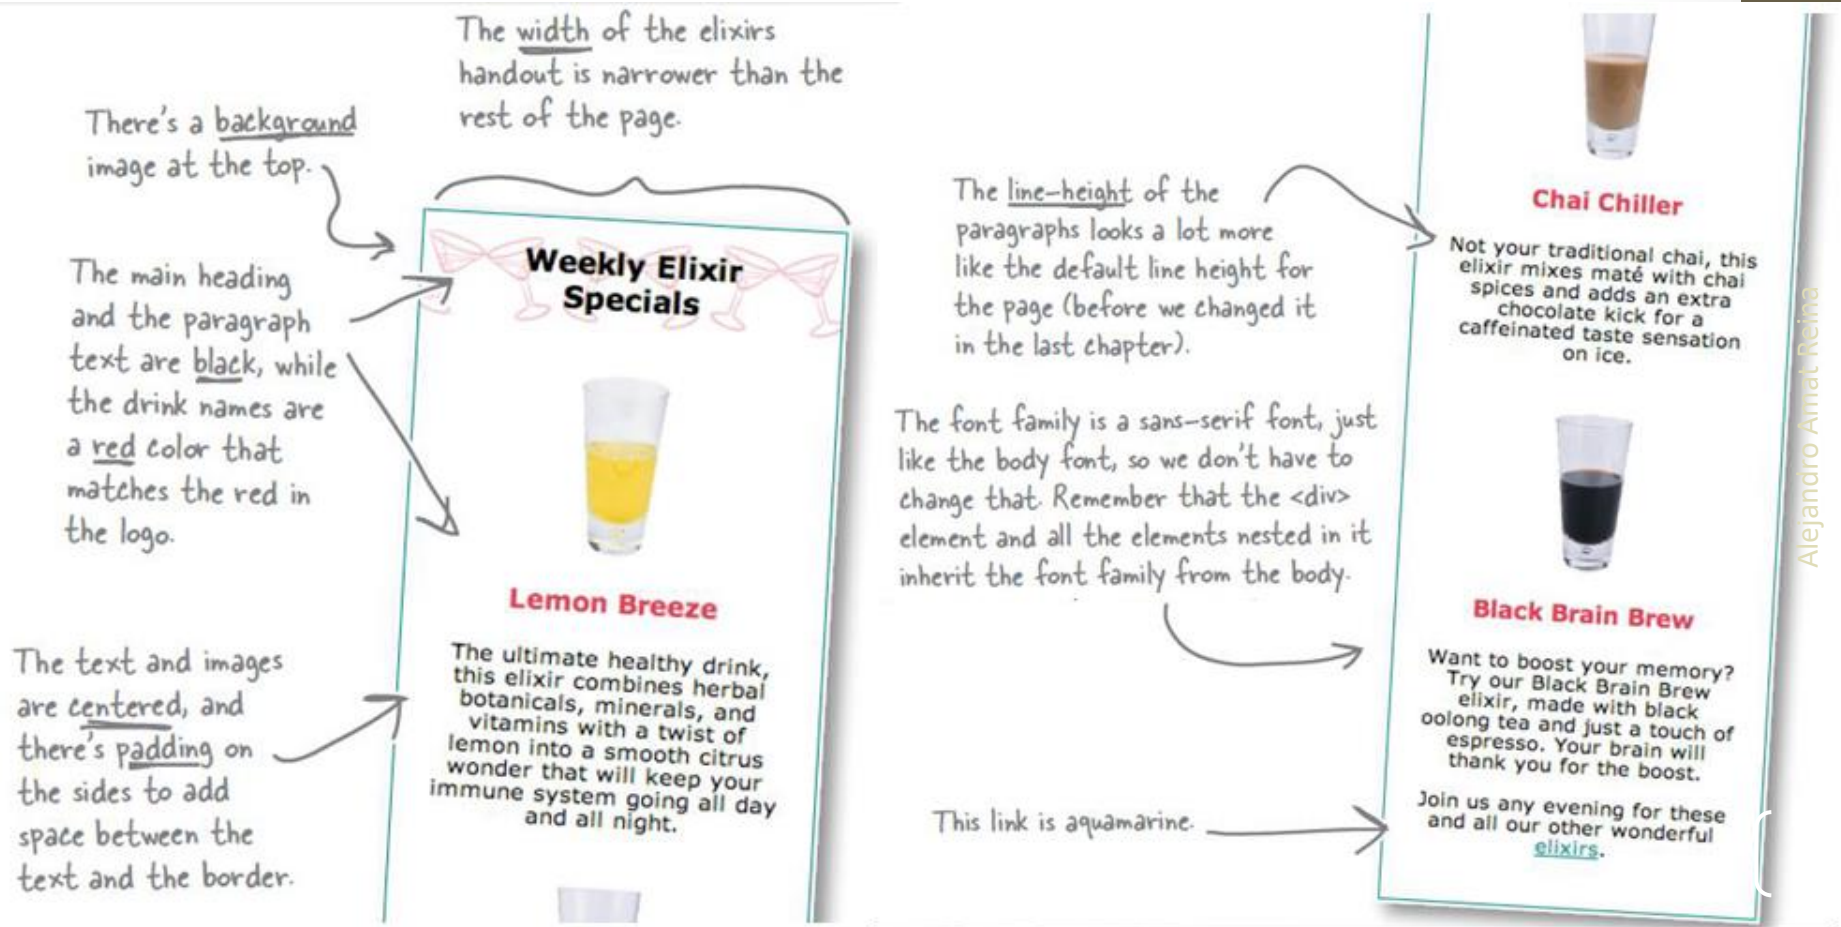 The width of the elixirs
handout is narrower than the
rest of the page.
There's a background
image at the top.
The main heading
and the paragraph
text are black, while
the drink names are
a red color that
matches the red in
the logo.
The text and images
are centered, and
there's padding on
the sides to add
space between the
text and the border.
Weekly Elixir
Specials
Lemon Breeze
The ultimate healthy drink,
this elixir combines herbal
botanicals, minerals, and
vitamins with a twist of
lemon into a smooth citrus
wonder that will keep your
immune system going all day
and all night.
The line-height of the
paragraphs looks a lot more
like the default line height for
the page (before we changed it
in the last chapter).
The font family is a sans-serif font, just
like the body font, so we don't have to
change that. Remember that the <div>
element and all the elements nested in it
inherit the font family from the body.
This link is aquamarine.
Chai Chiller
Not your traditional chai, this
elixir mixes maté with chai
spices and adds an extra
chocolate kick for a
caffeinated taste sensation
on ice.
Black Brain Brew
Want to boost your memory?
Try our Black Brain Brew
elixir, made with black
oolong tea and just a touch of
espresso. Your brain will
thank you for the boost.
Join us any evening for these
and all our other wonderful
elixirs.
Alejandro Amat Reina